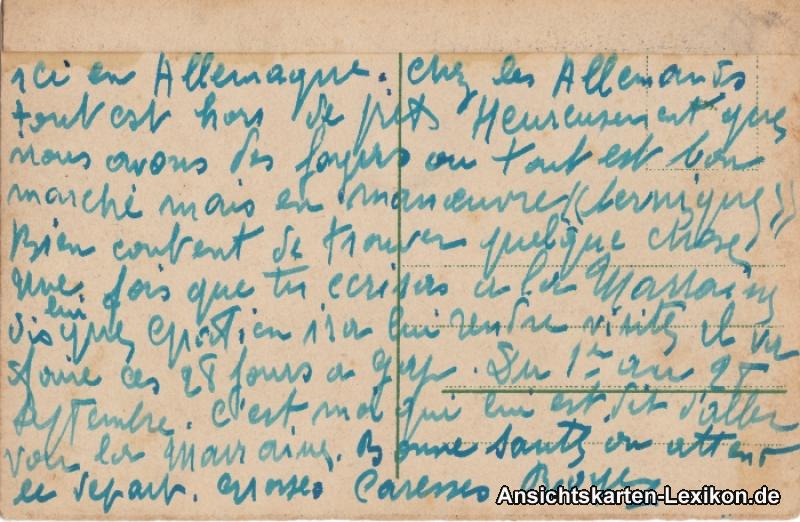 ici en Allemagne. chez les Allemands
tout est hors de prix Heureusement que
nous avons des foyers ou tout est bon
marché mais en manœuvre (( bernique ))
Bien content de trouver quelque chose
Une fois que tu ecriras a la Marraine
lui
dis que Gratien ira lui rendre visite il va
faire ces 28 jours a Gap. Du 1er au 27
Septembre. C'est moi qui lui est dit d'aller
voir la Marraine. Bonne santé on attent
le depart. Grosses Caresses
Ansichtskarten-Lexikon.de